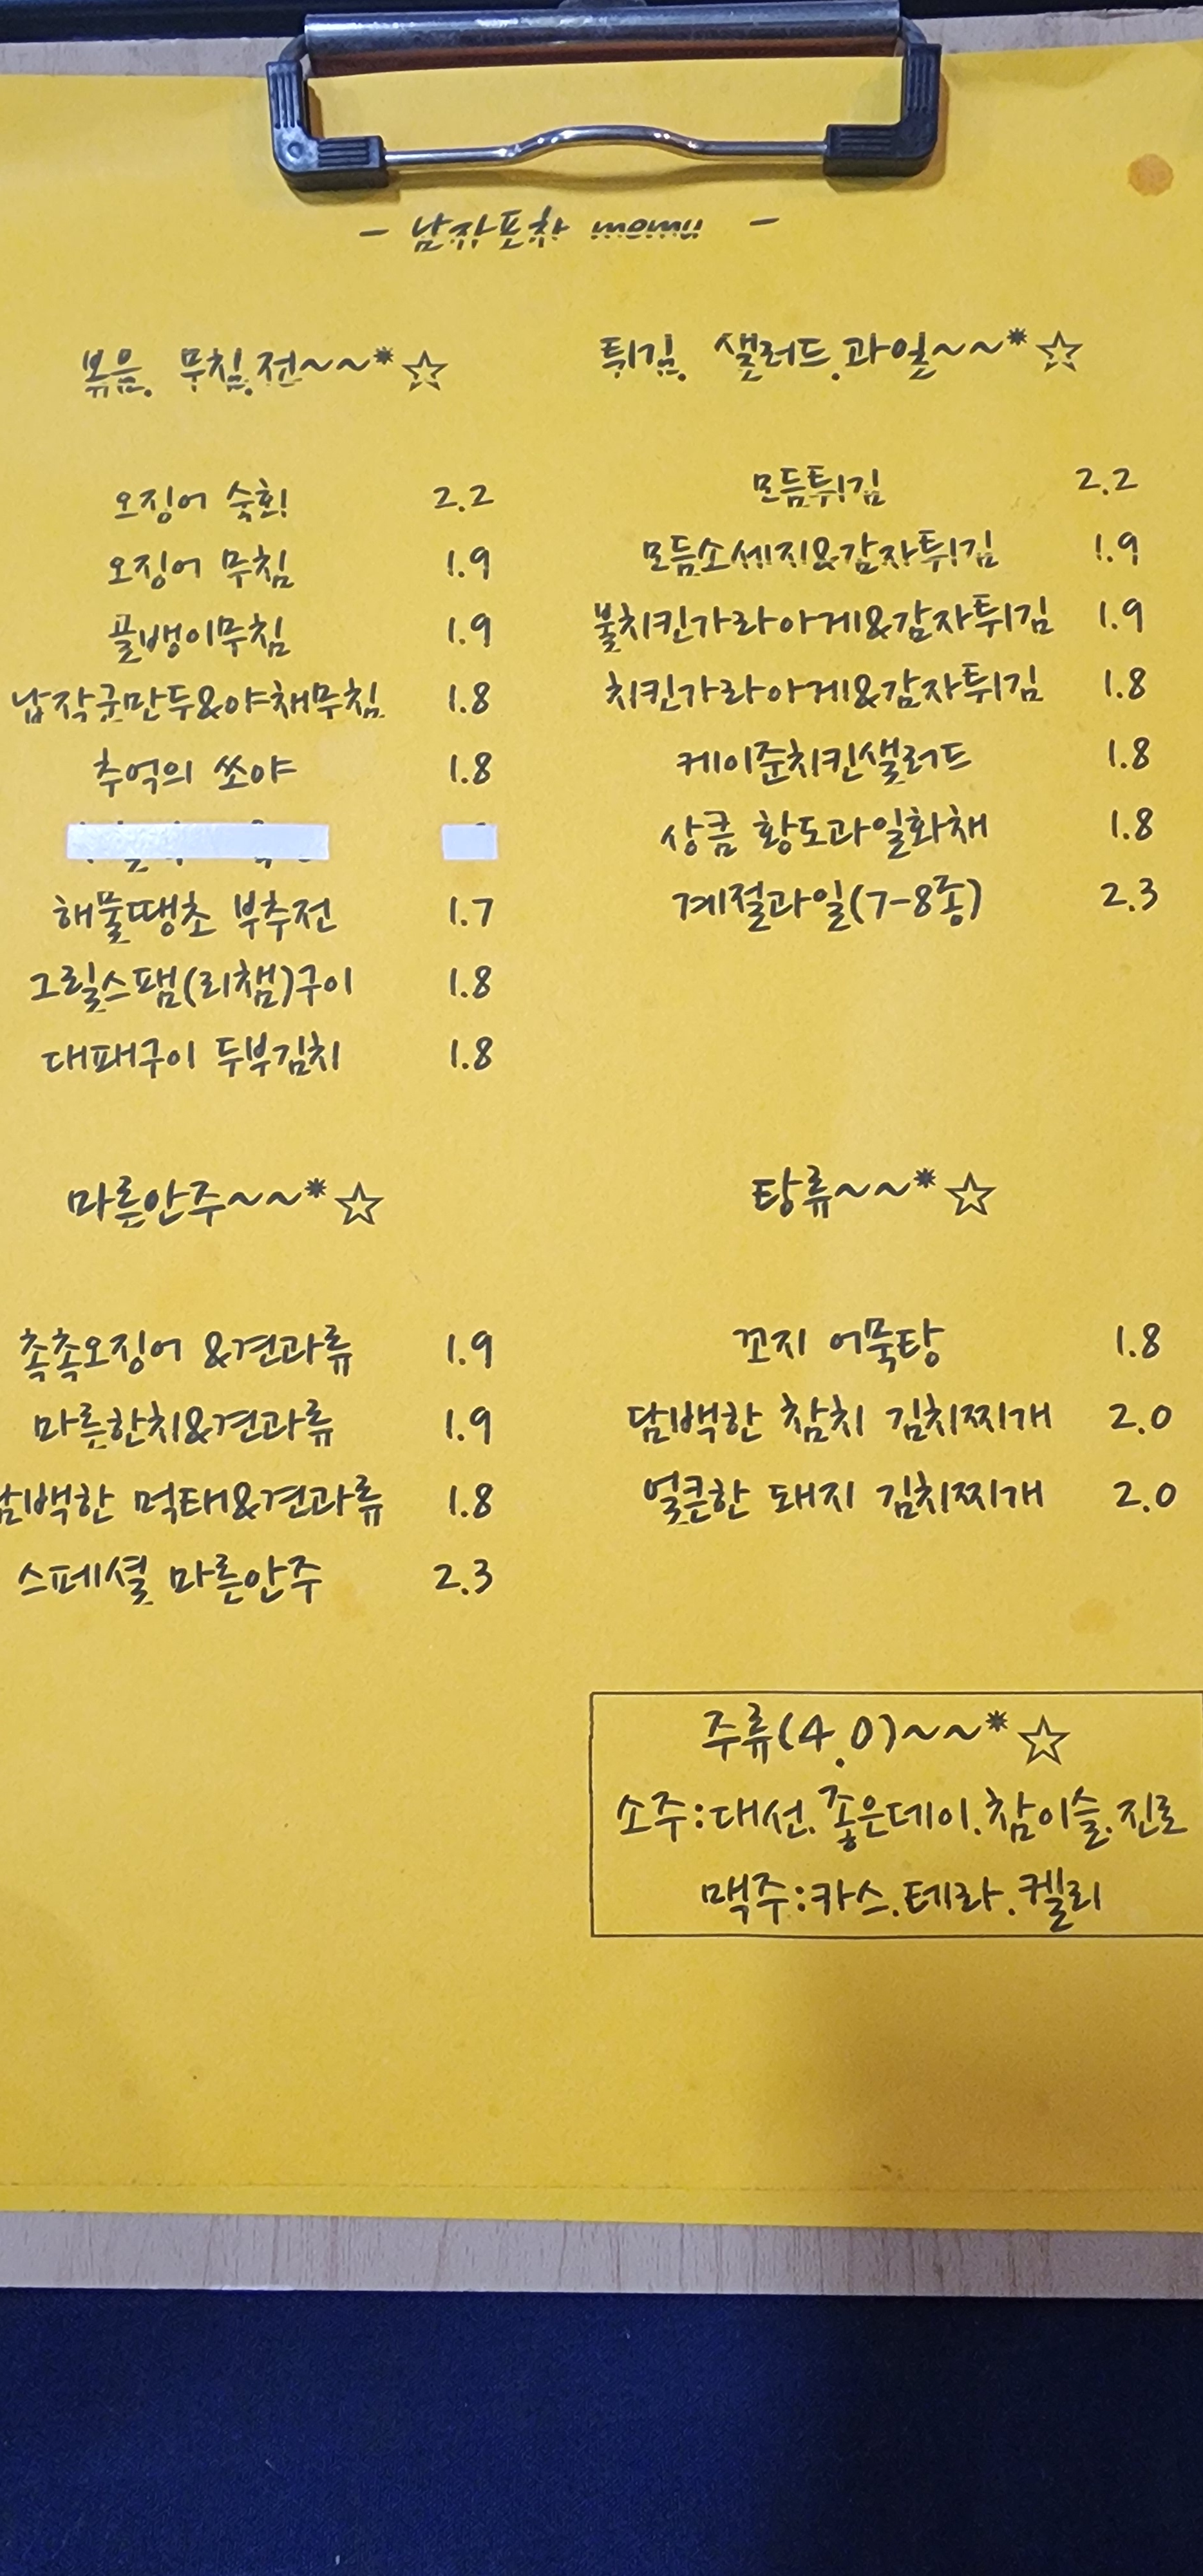 - 남자포차 menu -
볶음. 무침.전~~*☆
오징어 숙회 2.2
오징어 무침 1.9
골뱅이무침 1.9
납작군만두&야채무침 1.8
추억의 쏘야 1.8
해물땡초 부추전 1.7
그릴스팸(리챔)구이 1.8
대패구이 두부김치 1.8
튀김. 샐러드.과일~~*☆
모듬튀김 2.2
모듬소세지&감자튀김 1.9
불치킨가라아게&감자튀김 1.9
치킨가라아게&감자튀김 1.8
케이준치킨샐러드 1.8
상큼 황도과일화채 1.8
계절과일(7-8종) 2.3
마른안주~~*☆
촉촉오징어 &견과류 1.9
마른한치&견과류 1.9
담백한 먹태&견과류 1.8
스페셜 마른안주 2.3
탕류~~*☆
꼬지 어묵탕 1.8
담백한 참치 김치찌개 2.0
얼큰한 돼지 김치찌개 2.0
주류(4.0)~~*☆
소주:대선.좋은데이.참이슬.진로
맥주:카스.테라.켈리